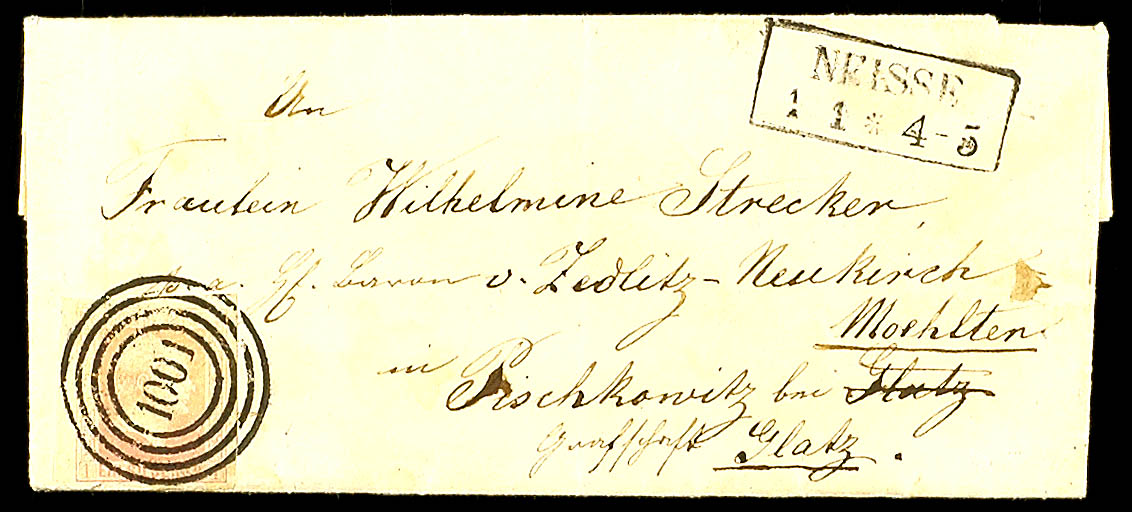 NEISSE
1 1 * 4-5
An
Fräulein Wilhelmine Strecker,
p. a. Hf. Baron v. Zedlitz-Neukirch
Moehlten
in Pischkowitz bei Glatz
Grafschaft Glatz.
1001
1